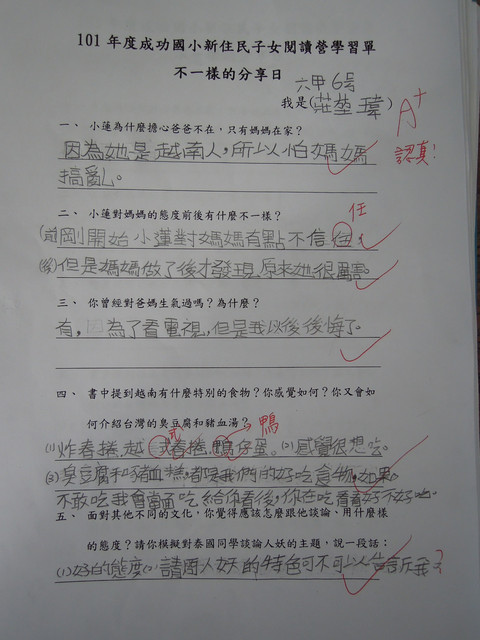 101 年度成功國小新住民子女閱讀營學習單
不一樣的分享日
六甲 6号
我是(莊埜瑋)
A+
認真!
一、 小蓮為什麼擔心爸爸不在,只有媽媽在家?
因為她是越南人,所以怕媽媽
搞亂。
二、 小蓮對媽媽的態度前後有什麼不一樣?
任
(前)剛開始小蓮對媽媽有點不信任,
(後)但是媽媽做了後才發現原來她很厲害。
三、 你曾經對爸媽生氣過嗎?為什麼?
有,因為了看電視,但是我以後後悔了。
四、 書中提到越南有什麼特別的食物?你感覺如何?你又會如
何介紹台灣的臭豆腐和豬血湯?
式 鴨
(1)炸春捲,越式春捲,鴨仔蛋。(2)感覺很想吃。
(3)臭豆腐和豬血糕,都是我們的好吃食物,如果
不敢吃我會當面吃給你看後,你在吃看看好不好吃。
五、 面對其他不同的文化,你覺得應該怎麼跟他談論、用什麼樣
的態度?請你模擬對泰國同學談論人妖的主題,說一段話:
(1)好的態度(2)請問人妖的特色可不可以告訴我?